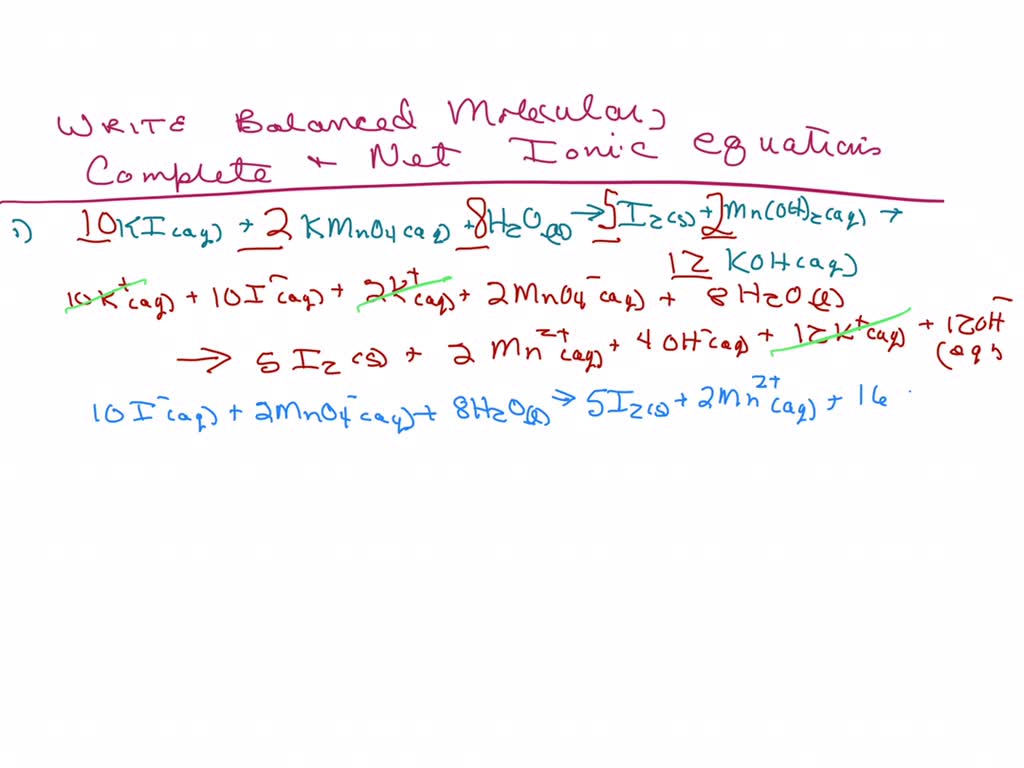 WRITE Balanced Molecular,
Complete + Net Ionic equations
i) 10KI(aq) + 2 KMnO4(aq) + 8H2O(l) → 5I2(s) + 2Mn(OH)2(aq) +
12 KOH(aq)
10K⁺(aq) + 10I⁻(aq) + 2K⁺(aq) + 2MnO4⁻(aq) + 8H2O(l)
→ 5I2(s) + 2Mn²⁺(aq) + 4OH⁻(aq) + 12K⁺(aq) + 12OH⁻(aq)
10I⁻(aq) + 2MnO4⁻(aq) + 8H2O(l) → 5I2(s) + 2Mn²⁺(aq) + 16